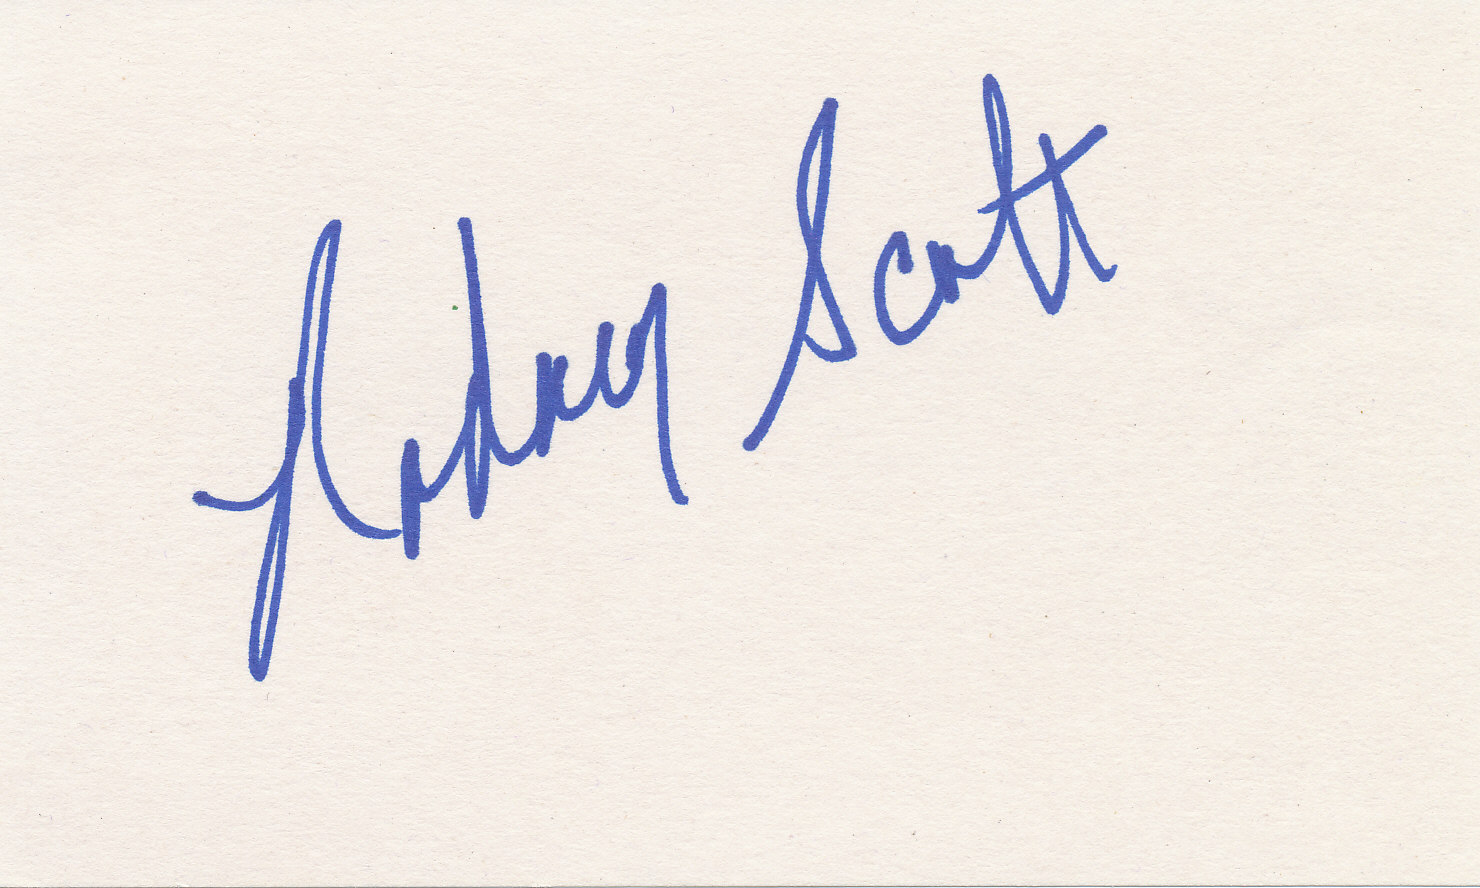 Rodney Scott